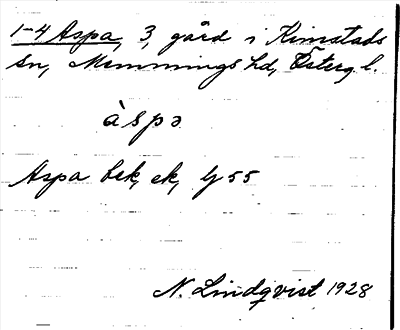 1-4 Aspa, 3, gård i Kimstads
sn, Memmings hd, Österg l.
àspə
Aspa bek, ek, G 55
N. Lindqvist 1928